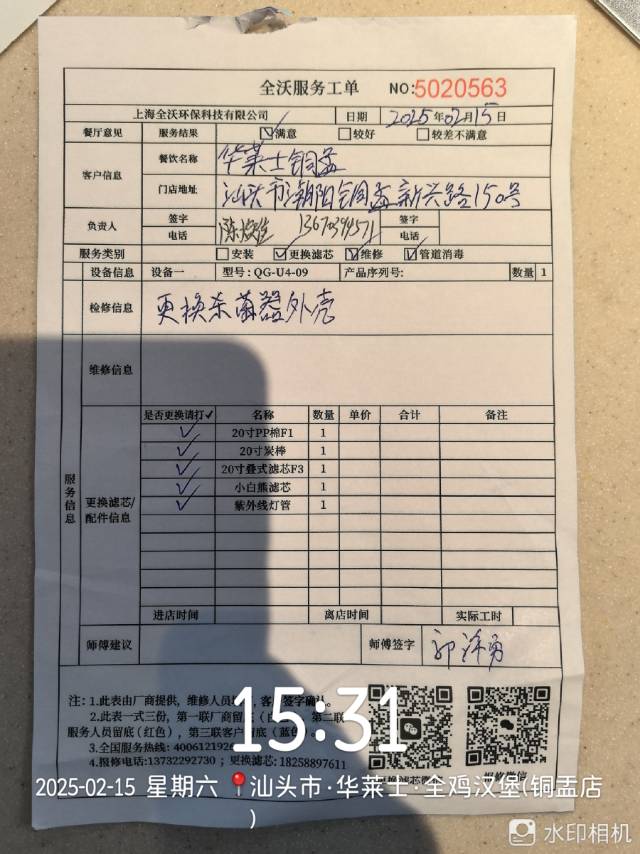 全沃服务工单 NO:5020563
上海全沃环保科技有限公司 日期 2025年02月15日
餐厅意见 服务结果 ☑满意 □较好 □较差不满意
客户信息 餐饮名称 华莱士铜盂
门店地址 汕头市潮阳铜盂新兴路150号
负责人 签字 签字
电话 电话
服务类别 □安装 ☑更换滤芯 ☑维修 ☑管道消毒
设备信息 设备一 型号:QG-U4-09 产品序列号: 数量 1
检修信息 更换杀菌器外壳
维修信息
服务信息
更换滤芯/配件信息
是否更换请打✓ 名称 数量 单价 合计 备注
✓ 20寸PP棉F1 1
✓ 20寸炭棒 1
✓ 20寸叠式滤芯F3 1
✓ 小白熊滤芯 1
✓ 紫外线灯管 1
进店时间 离店时间 实际工时
师傅建议 师傅签字
注: 1.此表由厂商提供, 维修人员 客 签字确认。
2.此表一式三份, 第一联厂商留底( 第二联
服务人员留底(红色), 第三联客户留底(蓝色
3.全国服务热线: 4006121926
4.报修电话:13732292730 ; 更换滤芯:18258897611
15:31
2025-02-15 星期六 汕头市·华莱士·全鸡汉堡(铜盂店
)
水印相机